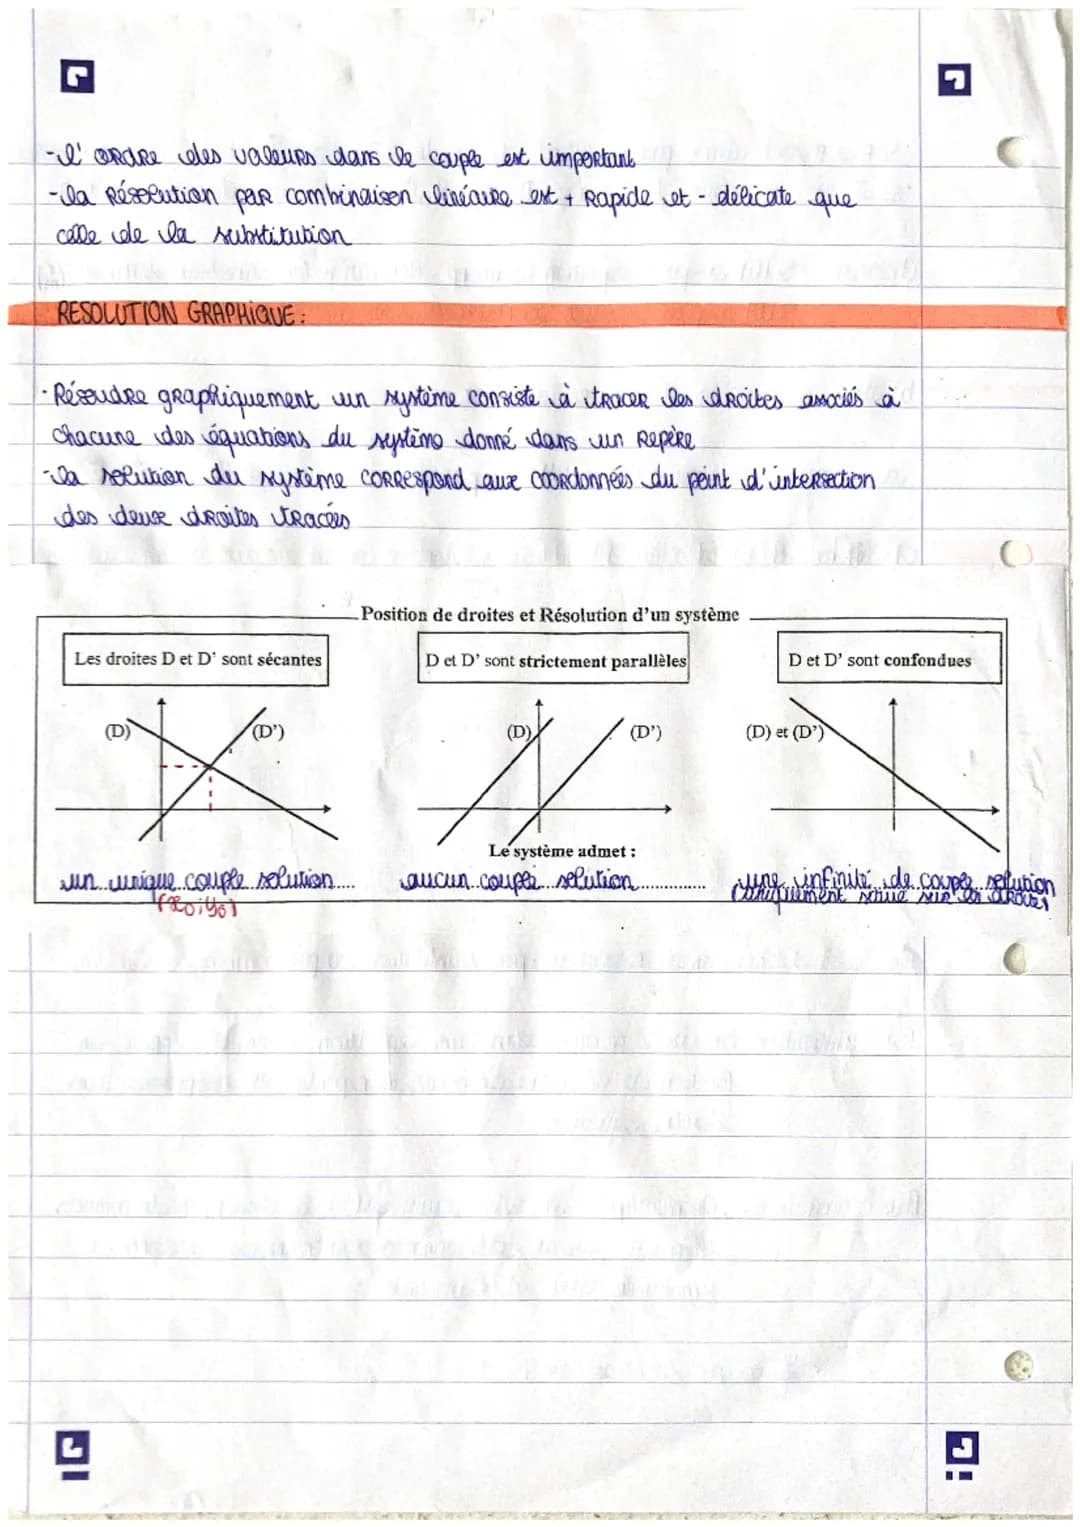 -l'ordre des valeurs dans le couple est important
-la Résolution par combinaison linéaire est + Rapide et - délicate que
celle de la substitution
RESOLUTION GRAPHIQUE:
- Résoudre graphiquement un système consiste à tracer les droites associés à
chacune des équations du système donné dans un Repère
-la solution du système correspond aux coordonnées du point d'intersection
des deux droites tracées
Position de droites et Résolution d'un système
Les droites D et D' sont sécantes
D et D' sont strictement parallèles
D et D' sont confondues
(D) (D')
(D) (D')
(D) et (D')
Le système admet :
un unique couple solution....
(x0;y0)
aucun couple solution..............
une infinité de couple solution
(uniquement située sur la droite)